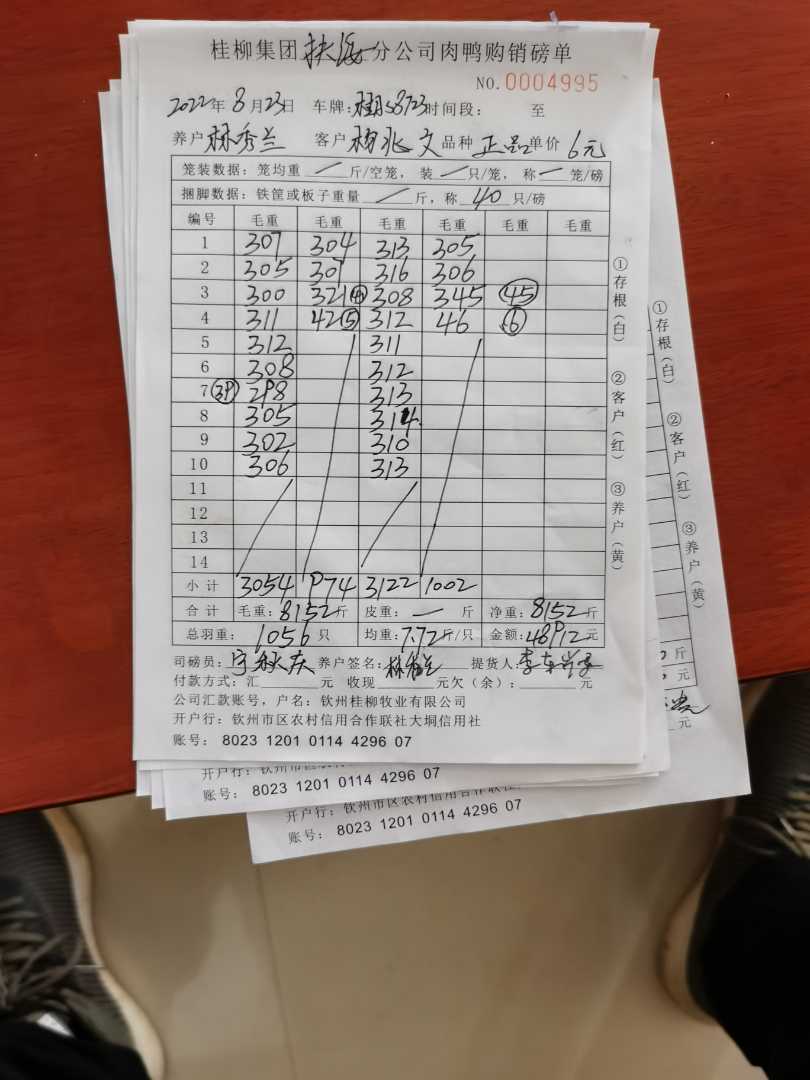 桂柳集团扶海分公司肉鸭购销磅单
NO.0004995
2022年8月23日 车牌: 8723时间段: 至
养户林秀兰 客户杨兆文品种正品单价6元
笼装数据:笼均重 — 斤/空笼,装 — 只/笼,称 — 笼/磅
捆脚数据:铁筐或板子重量 — 斤,称 40 只/磅
编号 毛重 毛重 毛重 毛重 毛重 毛重
1 307 304 313 305
2 305 307 316 306
3 300 321④ 308 345 ㊺
4 311 42⑤ 312 46 ⑥
5 312 311
6 308 312
7 ㊴ 298 313
8 305 314
9 302 310
10 306 313
11
12
13
14
小计 3054 974 3122 1002
合计 毛重:8152斤 皮重: — 斤 净重:8152斤
总羽重: 1056 只 均重:7.72斤/只 金额:48912元
司磅员: 养户签名: 林秀兰 提货人:
付款方式:汇 元 收现 元欠(余): 元
公司汇款账号,户名:钦州桂柳牧业有限公司
开户行:钦州市区农村信用合作联社大垌信用社
账号: 8023 1201 0114 4296 07
①存根(白)
②客户(红)
③养户(黄)
①存根(白)
②客户(红)
③养户(黄)
斤
元
元
开户行:钦州市区农村信用合作联社大垌信用社
账号: 8023 1201 0114 4296 07
开户行:钦州市区农村信用合作联
账号: 8023 1201 0114 4296 07